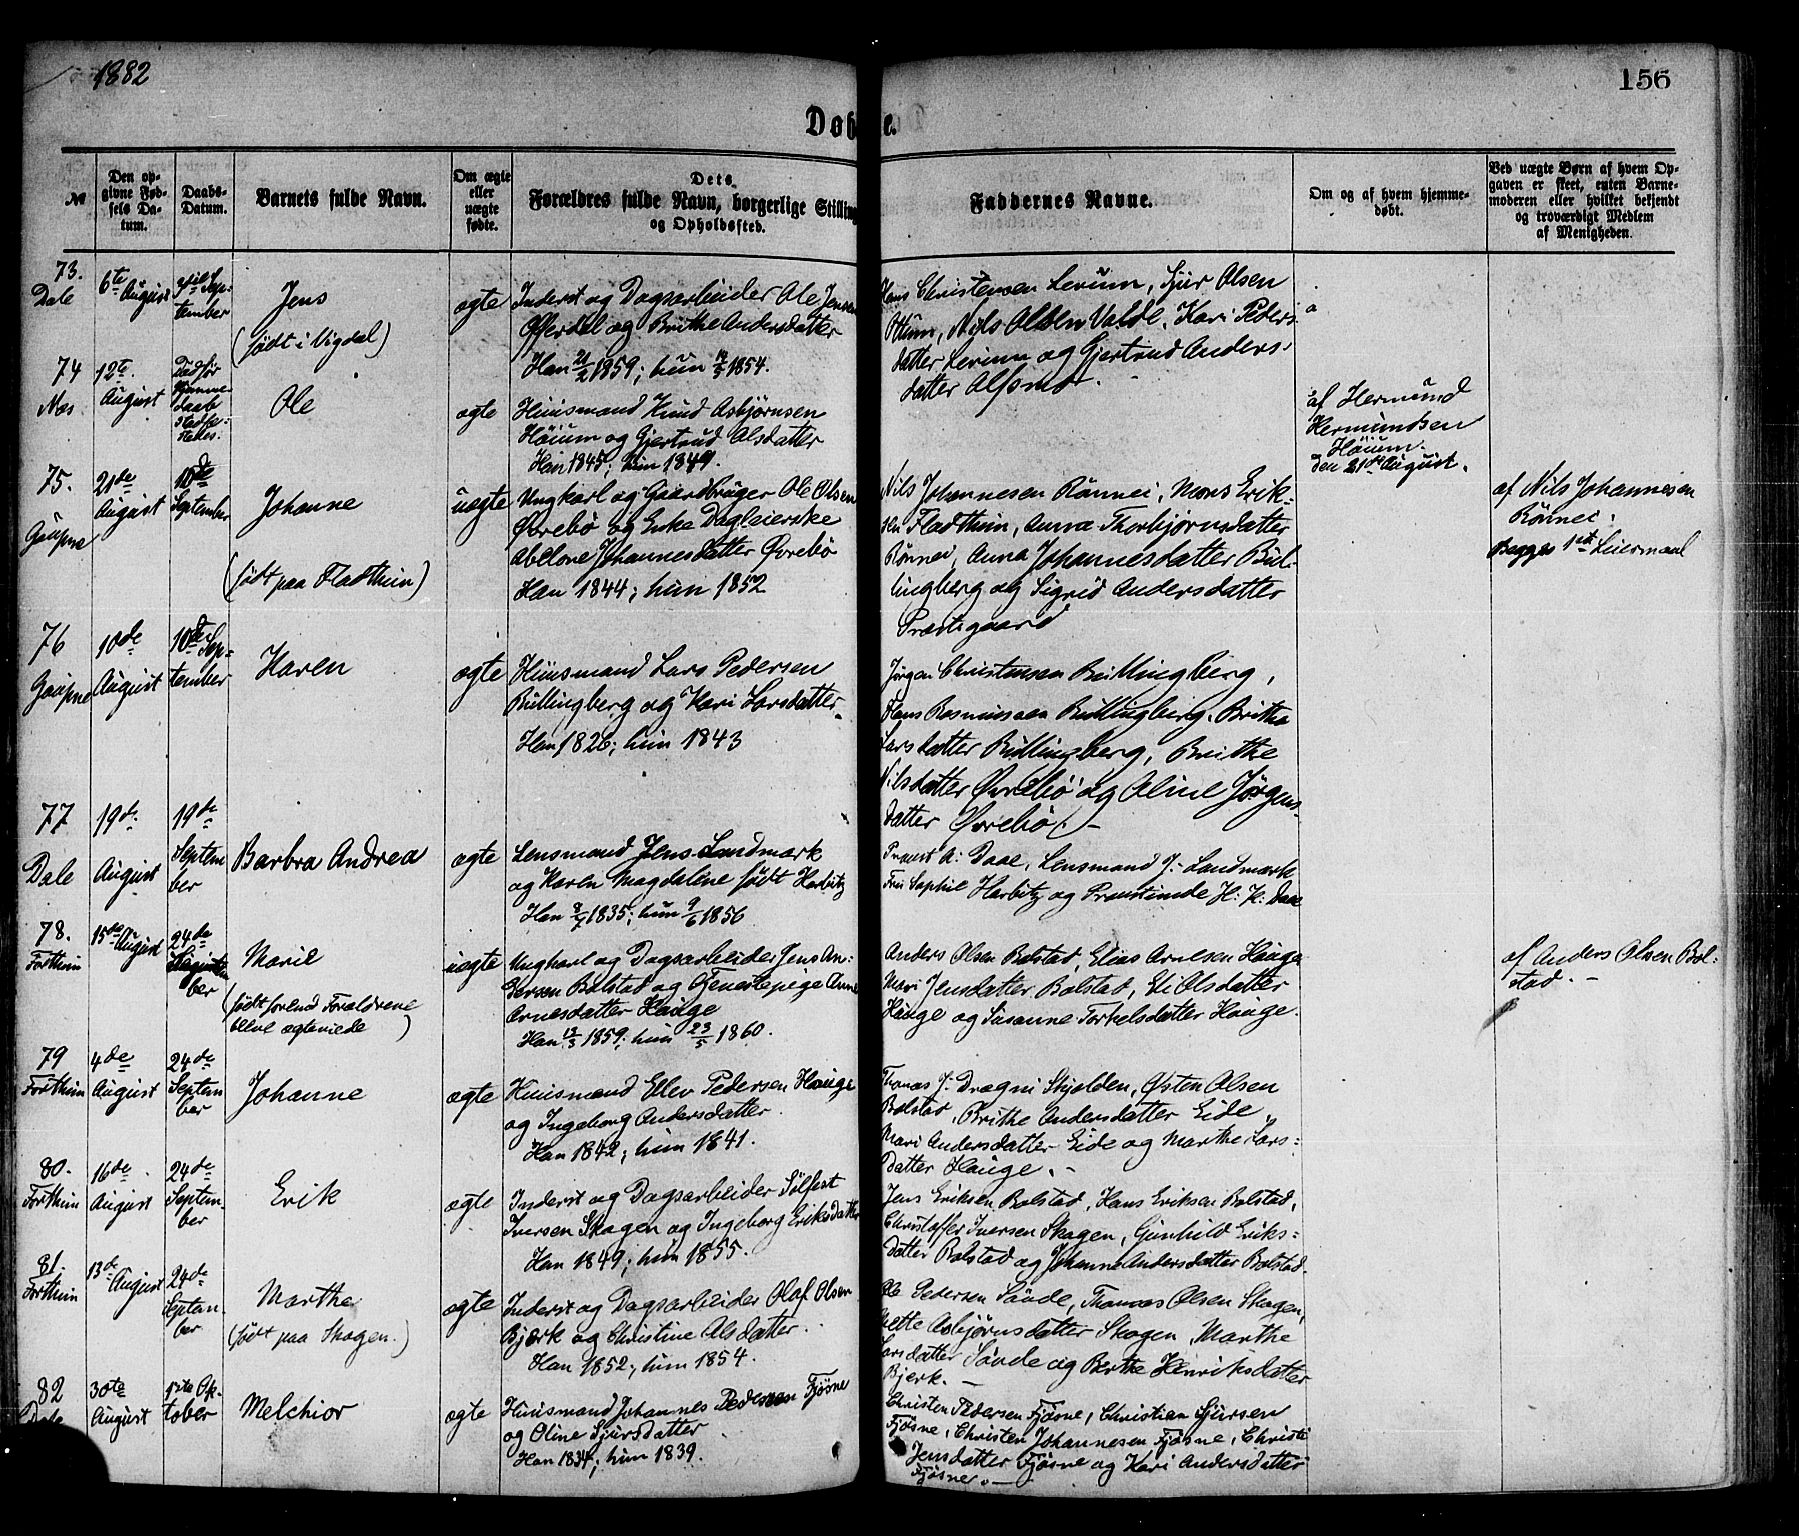 1882
156
Døbte.
№
Den op-
givne Fød-
sels Da-
tum.
Daabs-
Datum.
Barnets fulde Navn.
Om ægte
eller
uægte
fødte.
Dets
Forældres fulde Navn, borgerlige Stilling
og Opholdssted.
Faddernes Navne.
Om og af hvem hjemme-
døbt.
Ved uægte Børn af hvem Op-
gaven er skeet, enten Barne-
moderen eller hvilket bekjendt
og troværdigt Medlem
af Menigheden.
73.
Dale
6te August
Sep-
tember
Jens
(født i Vigdal)
ægte
Inderst og Dagsarbeider Ole Jensen
Offerdal og Brithe Andersdatter
Han 21/2 1859; hun 1854.
Hans Christensen Lerum, Sjur Olsen
Ottum, Nils Olsen Valde, Kari Peders-
datter Lerum og Gjertrud Anders-
datter Alsmo.
74
Næs
12te
August
Ole
ægte
Huusmand Knud Asbjørnsen
Høium og Gjertrud Olsdatter
Han 1845; hun 1849.
af Hermund
Hermundsen
Høium.
den 21de August.
75.
Gaupne
21de
August
10de
September
Johanne
(født paa Fladthun)
uægte
Ungkarl og Gaardbruger Ole Olsen
Øvrebø og Enke Dagleierske
Abelone Johannesdatter Øvrebø
Han 1844; hun 1852
Nils Johannesen Rønnei, Mons Erik-
sen Fladthun, Anna Thorbjørnsdatter
Rønnei, Anna Johannesdatter Bul-
lingberg og Sigrid Andersdatter
Præstegaard
af Nils Johannesen
Rønnei.
Begges 1ste Leiermaal
76
Gaupne
10de
August
10de Sep-
tember
Karen
ægte
Huusmand Lars Pedersen
Bullingberg og Kari Larsdatter
Han 1826; hun 1843
Jørgen Christensen Bullingberg,
Hans Rasmussen Bullingberg, Brithe
Larsdatter Bullingberg, Brithe
Nilsdatter Øvrebø og Oline Jørgens-
datter Øvrebø.-
77
Dale
19de
August
19de
Septem
ber
Barbra Andrea
ægte
Lensmand Jens Landmark
og Karen Magdalene født Harbitz
Han 8/7 1835; hun 9/6 1856
Provst A: Daae, Lensmand J: Landmark
Fru Sophie Harbitz og Provstinde H: K: Daae
78.
Forthun
15de August
24de
Septem
ber
Marie
(født forend Forældrene
bleve ægteviede)
uægte
Ungkarl og Dagsarbeider Jens An-
dersen Bolstad og Tjenestepige Anne
Arnesdatter Hauge
Han 13/3 1859; hun 23/5 1860.
Anders Olsen Bolstad, Elias Arnesen Hauge
Mari Jensdatter Bolstad, Eli Olsdatter
Hauge og Susanne Torkelsdatter Hauge.
af Anders Olsen Bol-
stad. -
79
Forthun
4de
August
24de
Septem
ber
Johanne
ægte
Huusmand Ellev Pedersen Hauge
og Ingeborg Andersdatter
Han 1842; hun 1841.
Thomas J: Drægni Skjolden, Østen Olsen
Bolstad, Brithe Andersdatter Eide,
Mari Andersdatter Eide og Marthe Lars-
datter Hauge. -
80.
Forthun
16de
August
24de
Septem-
ber
Erik
ægte
Inderst og Dagsarbeider Sølfest
Iversen Skagen og Ingeborg Eriksdatter
Han 1849; hun 1855.
Jens Eriksen Bolstad, Hans Eriksen Bolstad,
Christoffer Iversen Skagen, Gunhild Eriks-
datter Bolstad og Johanne Andersdatter Bolstad.
81.
Forthun
13de August
24de
Septem-
ber
Marthe
(født paa Skagen.)
ægte
Inderst og Dagsarbeider Olaf Olsen
Bjerk og Christine Olsdatter.
Han 1852; hun 1854.
Ole Pedersen Søvde, Thomas Olsen Skagen,
Mette Asbjørnsdatter Skagen, Marthe
Larsdatter Søvde og Berthe Henriksdatter
Bjerk. -
82
Dale
30te
August
1ste Ok-
tober
Melchior
ægte
Huusmand Johannes Pedersen Fjøsne
og Oline Sjursdatter
Han 1834; hun 1839.
Christen Pedersen Fjøsne, Christian Sjursen
Fjøsne, Christen Johannesen Fjøsne, Christi
Jensdatter Fjøsne og Kari Andersdatter
Fjøsne. -